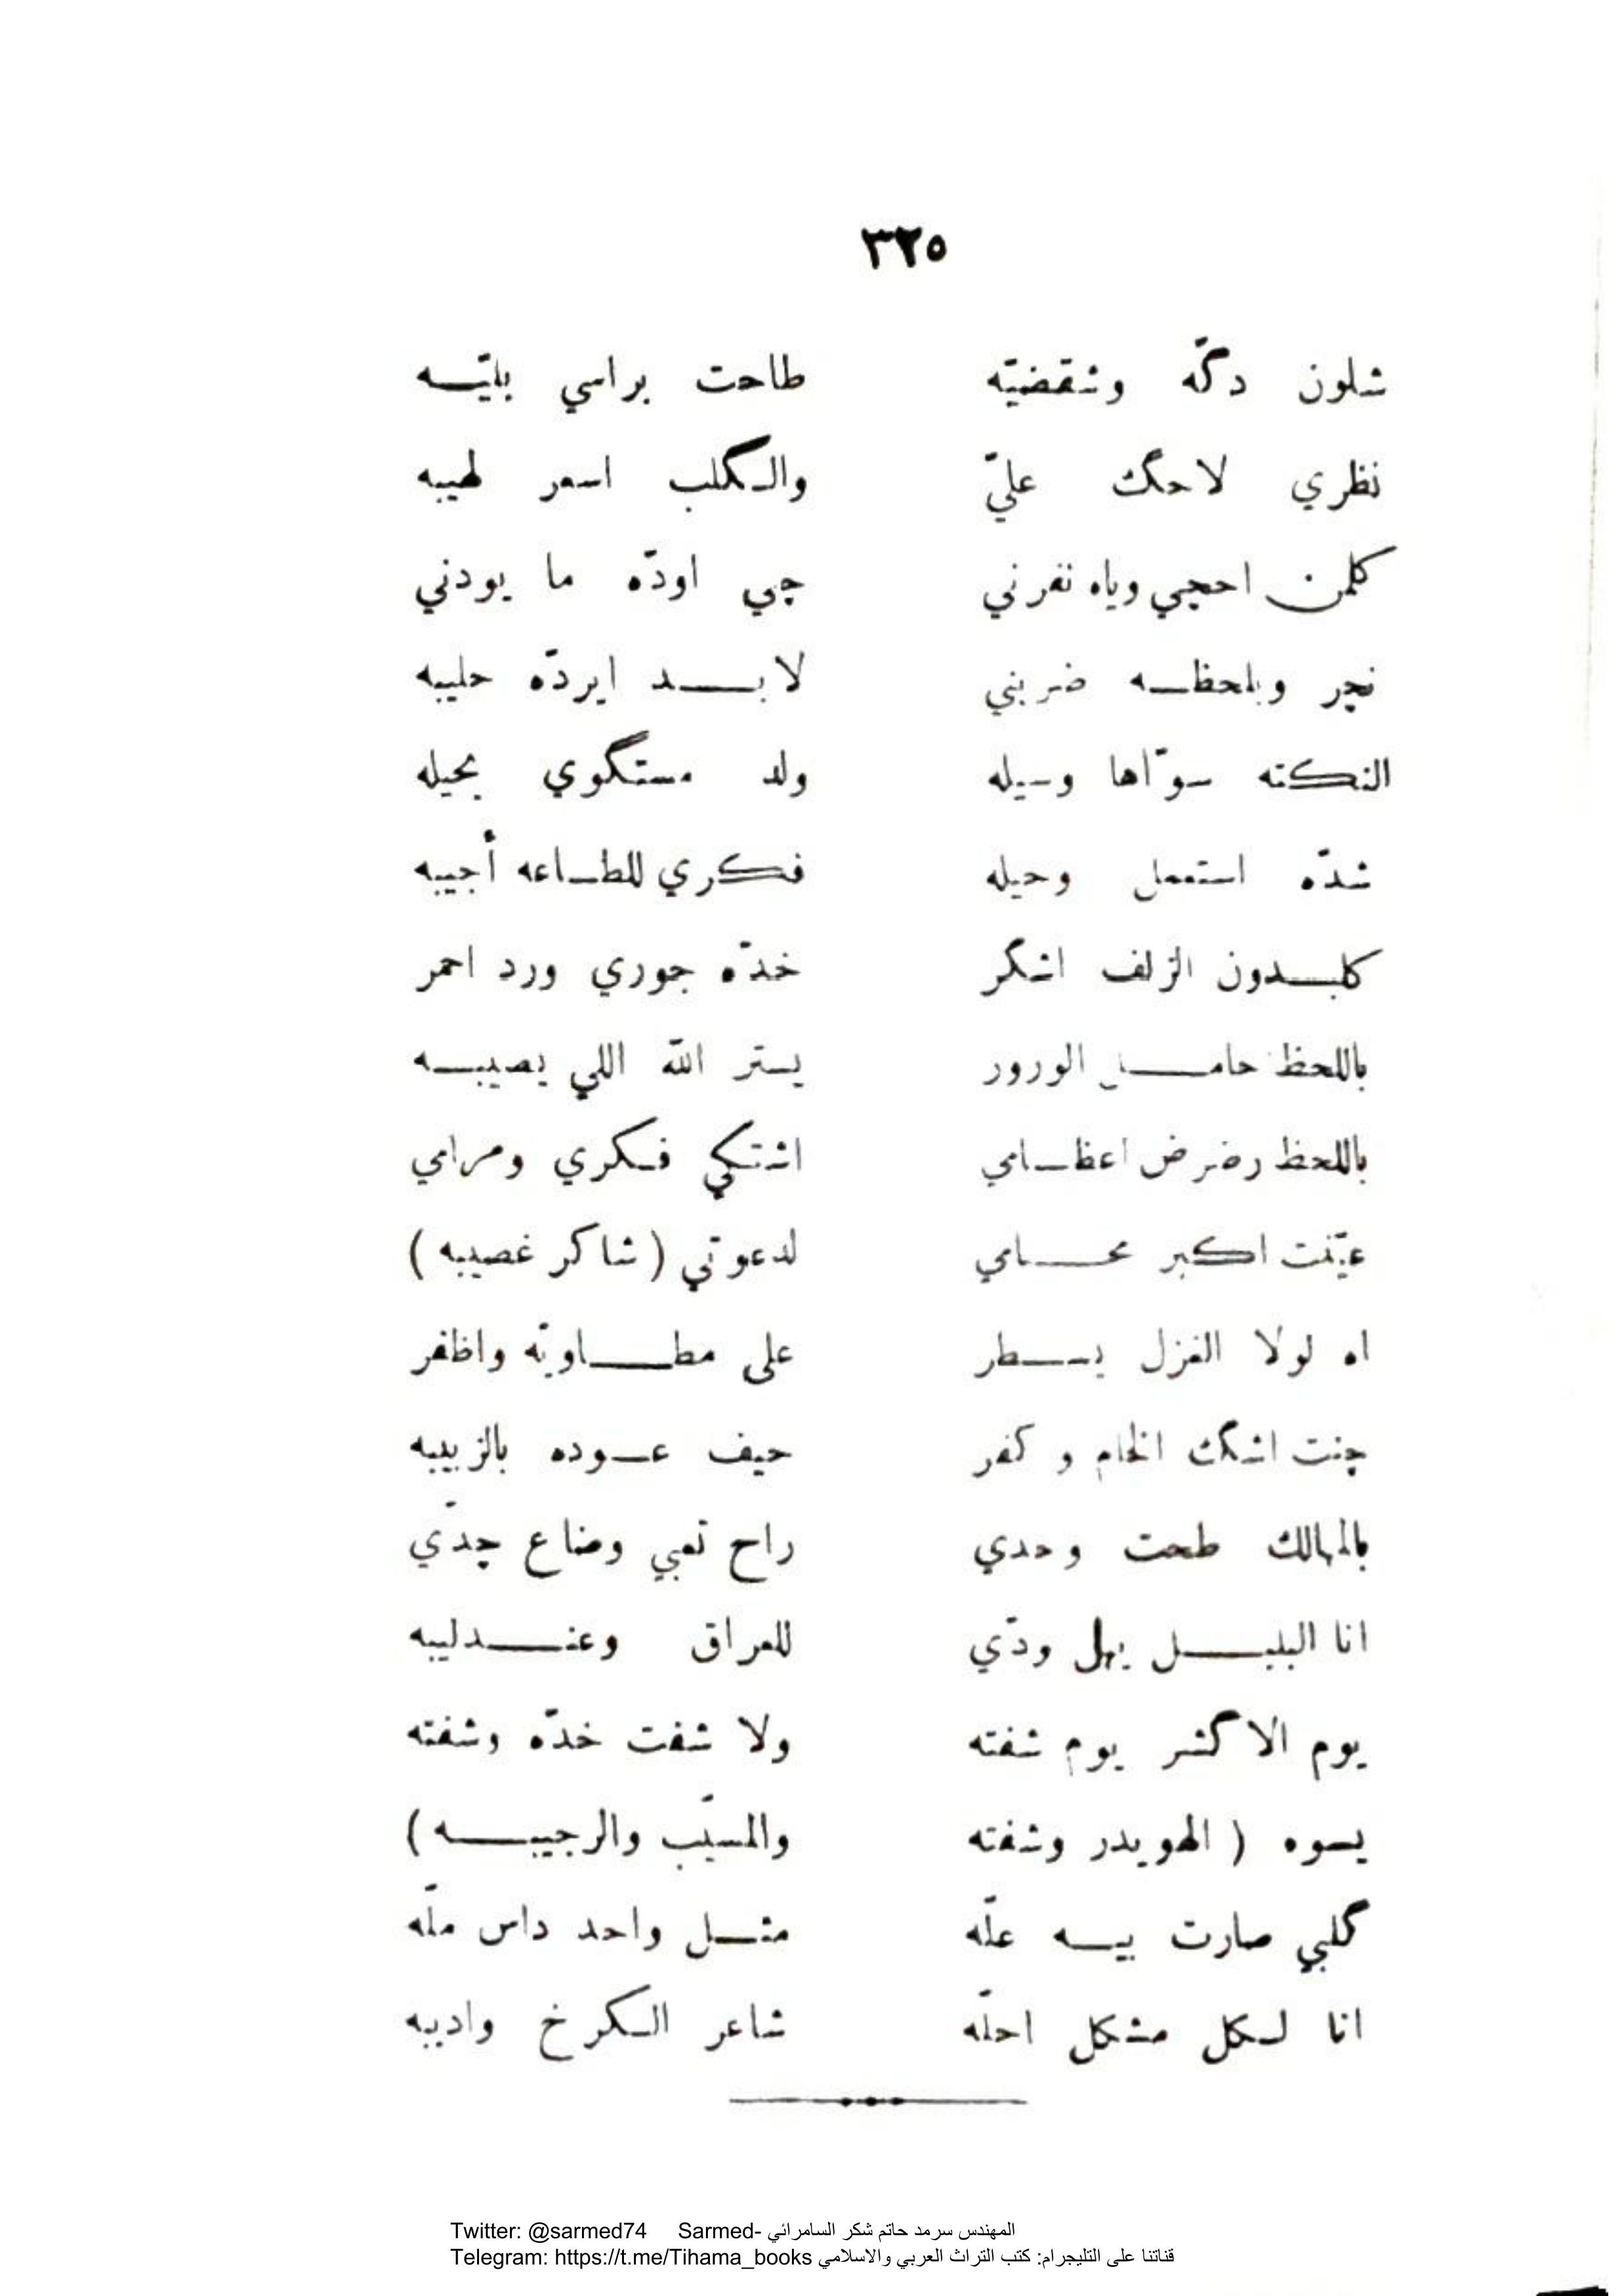 ٣٢٥
شلون دگّه وشقضيّه طاحت براسي بليّـــه
نظري لاحگ عليّ والـگلب اسعر لهيبه
كلمن احچي وياه نفرني چي اودّه ما يودني
نچر وبلحظـه ضربني لابـــد ايردّه حليبه
النكته سوّاها وسيله ولد مستگوي بحيله
شدّه استعمل وحيله فكري للطـاعه أجيبه
كلبـدون الزلف اشگر خدّه جوري ورد احمر
باللحظ حامـــل الورور يستر الله اللي يصيبـه
باللحظ رضرض اعظـامي اشتكي فكري ومرامي
عيّنت اكبر محـــامي لدعوتي ( شاكر غصيبه )
اه لولا الغزل يـــطر على مطــاويّه واظفر
چنت اشگك الخام وكفر حيف عـوده بالزبيبه
بالمهالك طحت وحدي راح تعبي وضاع چدّي
انا البلبـــل يهل ودّي للعراق وعنـــدليبه
يوم الاگشر يوم شفته ولا شفت خدّه وشفته
يسوه ( الهويدر وشفته والمسيّب والرجيبـــه )
گلبي صارت بيـه علّه مثـل واحد داس ملّه
انا لـكل مشكل احلّه شاعر الـكرخ واديبه
Twitter: @sarmed74 Sarmed- المهندس سرمد حاتم شكر السامرائي
Telegram: https://t.me/Tihama_books قناتنا على التليجرام: كتب التراث العربي والاسلامي